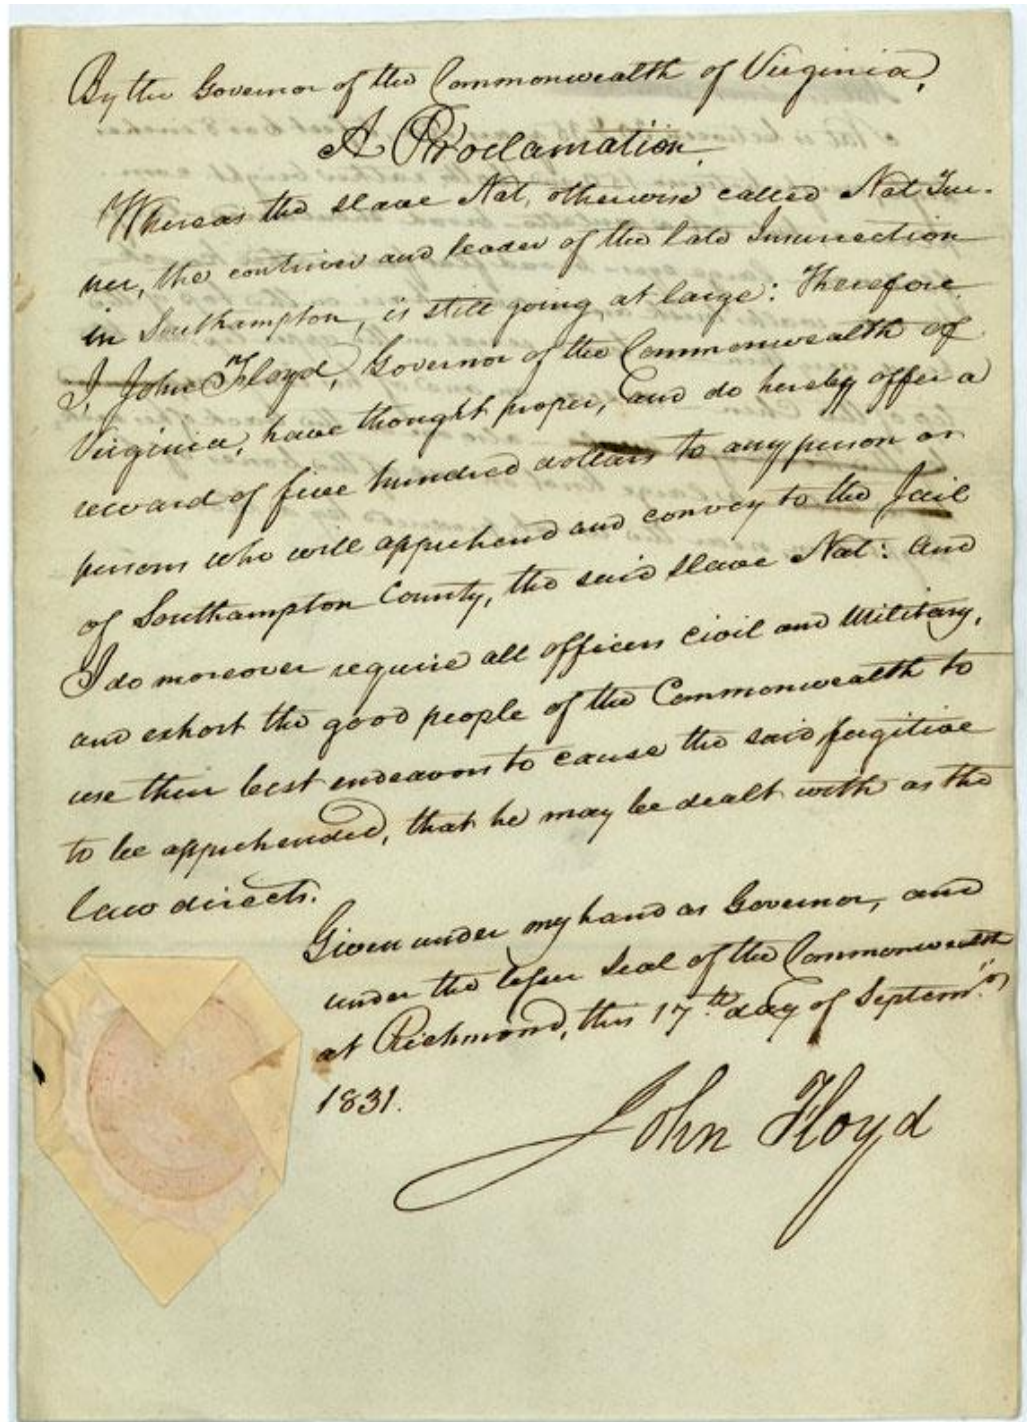 By the Governor of the Commonwealth of Virginia,
A Proclamation.
Whereas the slave Nat, otherwise called Nat Tur-
ner, the contriver and leader of the late Insurrection
in Southampton, is still going at large: Therefore
I, John Floyd, Governor of the Commonwealth of
Virginia, have thought proper, and do hereby offer a
reward of five hundred dollars to any person or
persons who will apprehend and convey to the Jail
of Southampton County, the said slave Nat: and
I do moreover require all officers civil and military,
and exhort the good people of the Commonwealth to
use their best endeavors to cause the said fugitive
to be apprehended, that he may be dealt with as the
law directs.
Given under my hand as Governor, and
under the lesser Seal of the Commonwealth
at Richmond, this 17th day of Septemr.
1831.
John Floyd